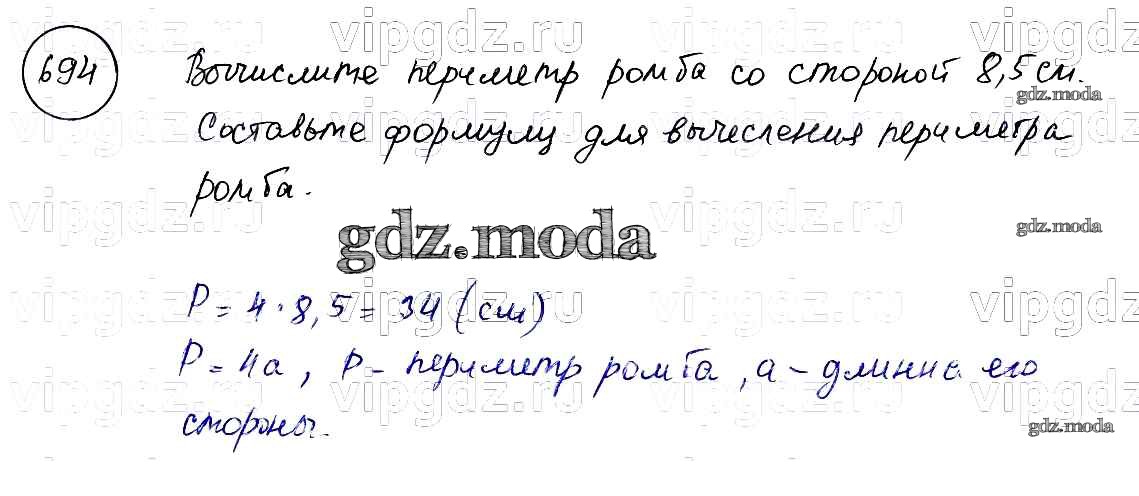 vipgdz.ru vipgdz.ru vipgdz.ru vipgdz.ru
694 Вычислите периметр ромба со стороной 8,5 см.
gdz.moda
vipgdz.ru vipgdz.ru vipgdz.ru vipgdz.ru
Составьте формулу для вычисления периметра
ромба.
vipgdz.ru vipgdz.ru vipgdz.ru vipgdz.ru
gdz.moda gdz.moda
P = 4 · 8,5 = 34 (см)
vipgdz.ru vipgdz.ru vipgdz.ru vipgdz.ru
P = 4a, P – периметр ромба, a – длинна его
vipgdz.ru vipgdz.ru vipgdz.ru vipgdz.ru
стороны.
gdz.moda